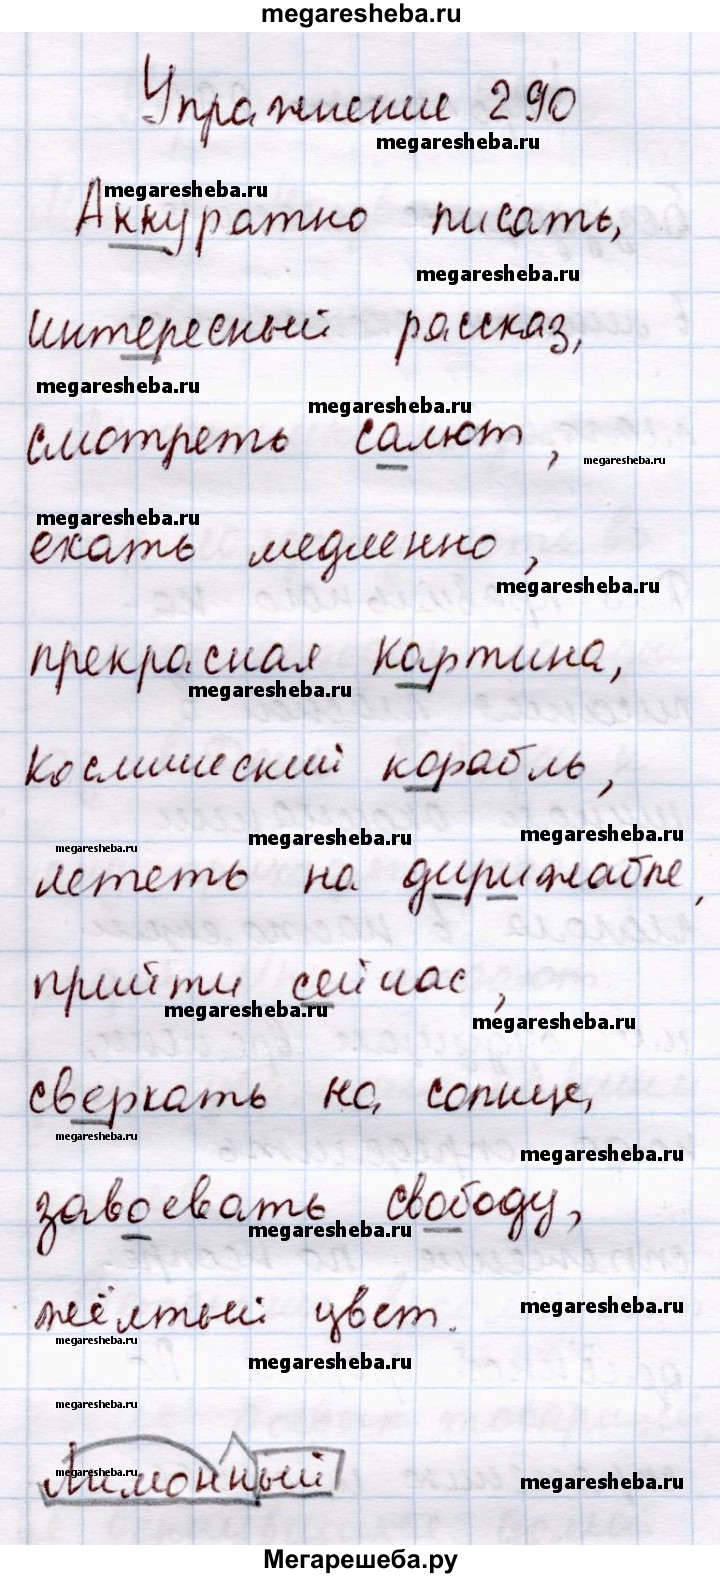 megaresheba.ru
Упражнение 290
megaresheba.ru
megaresheba.ru
Аккуратно писать,
megaresheba.ru
интересный рассказ,
megaresheba.ru
megaresheba.ru
смотреть салют,
megaresheba.ru
megaresheba.ru
ехать медленно,
megaresheba.ru
прекрасная картина,
megaresheba.ru
космический корабль,
megaresheba.ru
megaresheba.ru
megaresheba.ru
лететь на дирижабле,
прийти сейчас,
megaresheba.ru
megaresheba.ru
сверкать на солнце,
megaresheba.ru
megaresheba.ru
завоевать свободу,
megaresheba.ru
жёлтый цвет.
megaresheba.ru
megaresheba.ru
megaresheba.ru
megaresheba.ru
Лимонный
megaresheba.ru
megaresheba.ru
Мегарешеба.ру